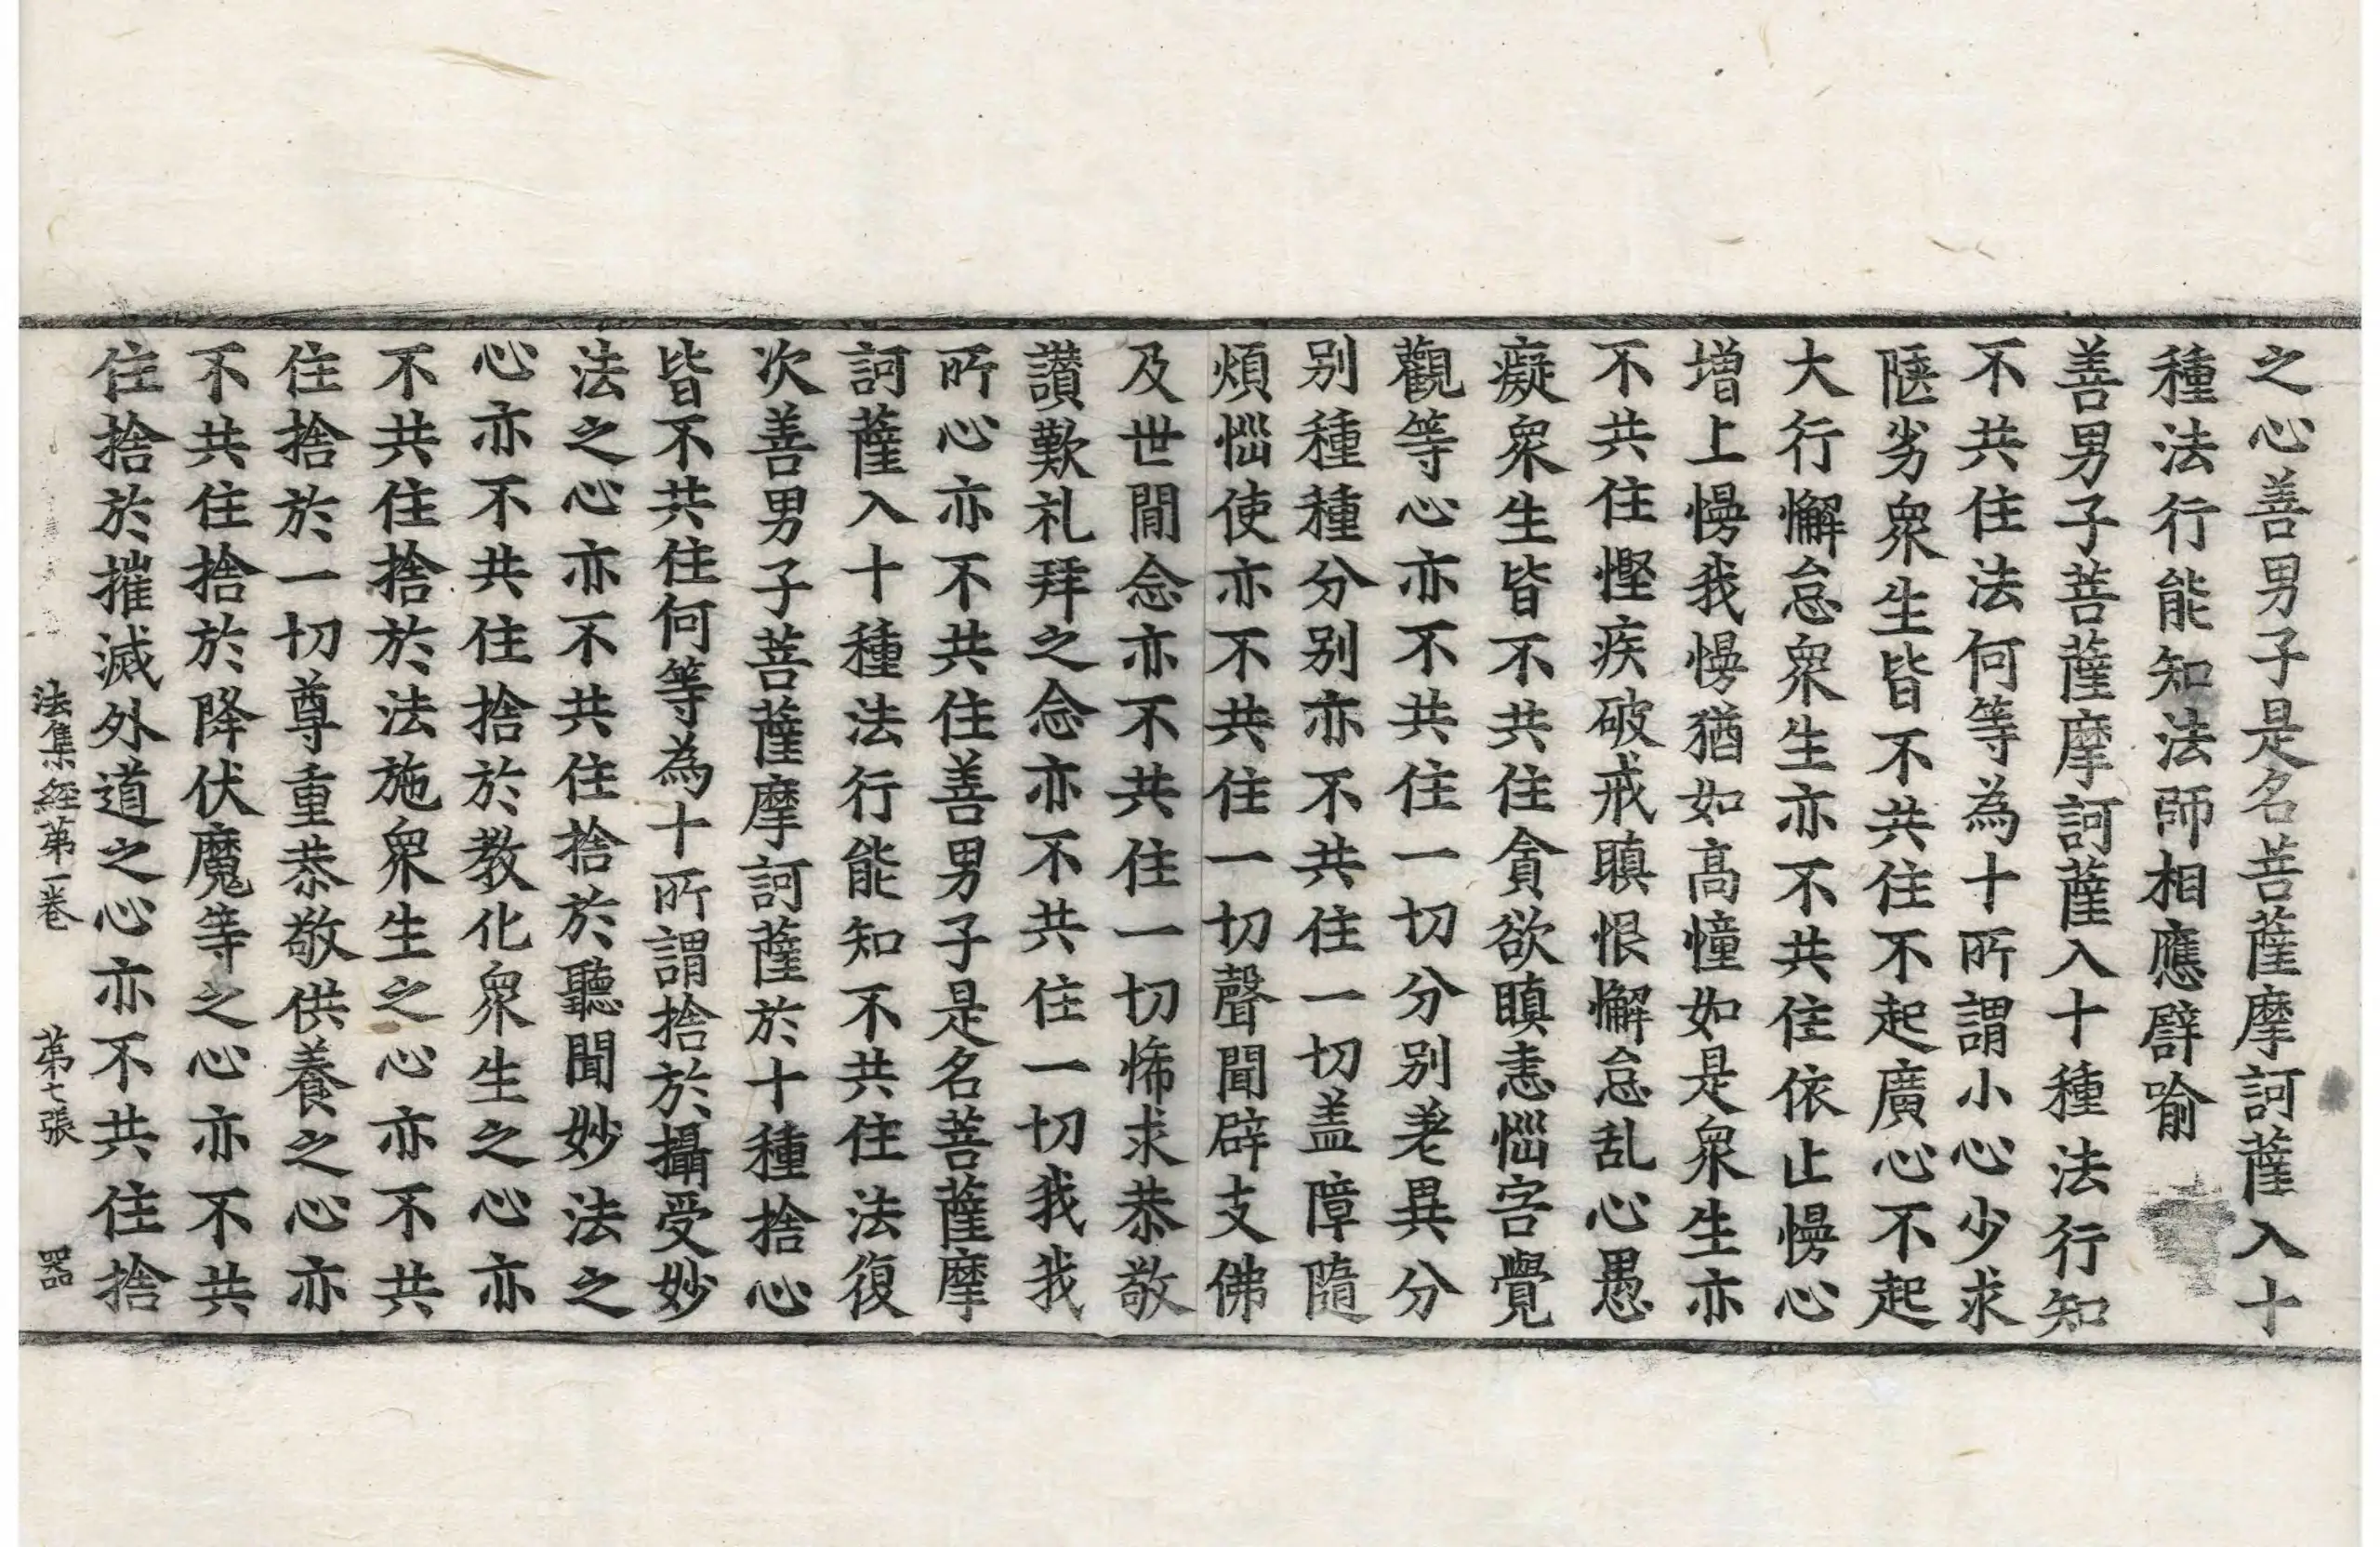 之心善男子是名菩薩摩訶薩入十
種法行能知法師相應譬喻
善男子菩薩摩訶薩入十種法行知
不共住法何等為十所謂小心少求
陿劣衆生皆不共住不起廣心不起
大行懈怠衆生亦不共住依止慢心
增上慢我慢猶如高幢如是衆生亦
不共住慳疾破戒瞋恨懈怠乱心愚
癡衆生皆不共住貪欲瞋恚惱害覺
觀等心亦不共住一切分别差異分
别種種分别亦不共住一切盖障隨
煩惱使亦不共住一切聲聞辟支佛
及世閒念亦不共住一切悕求恭敬
讃歎礼拜之念亦不共住一切我我
所心亦不共住善男子是名菩薩摩
訶薩入十種法行能知不共住法復
次善男子菩薩摩訶薩於十種捨心
皆不共住何等為十所謂捨於攝受妙
法之心亦不共住捨於聽聞妙法之
心亦不共住捨於教化衆生之心亦
不共住捨於法施衆生之心亦不共
住捨於一切尊重恭敬供養之心亦
不共住捨於降伏魔等之心亦不共
住捨於摧滅外道之心亦不共住捨
法集經第一卷 第七張 器